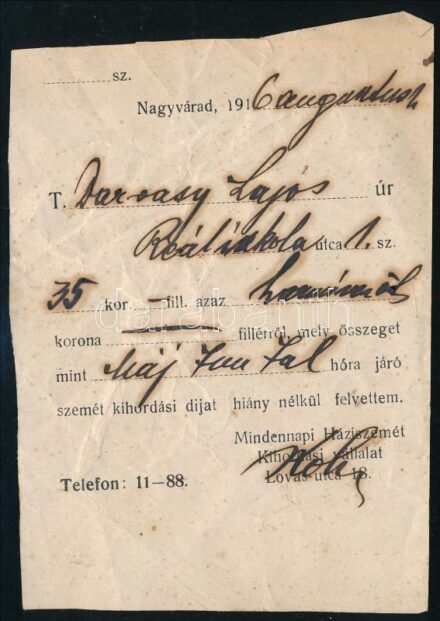 sz.
Nagyvárad, 1916 augusztus 1
T. Darvasy Lajos úr
Reáliskola utca 1. sz.
35 kor. — fill. azaz harmincöt
korona fillérről, mely összeget
mint Máj Jun Jul hóra járó
szemét kihordási dijat hiány nélkül felvettem.
Mindennapi Háziszemét
Kihordási vállalat
Lovas-utca 18.
Telefon: 11—88.
darabanth